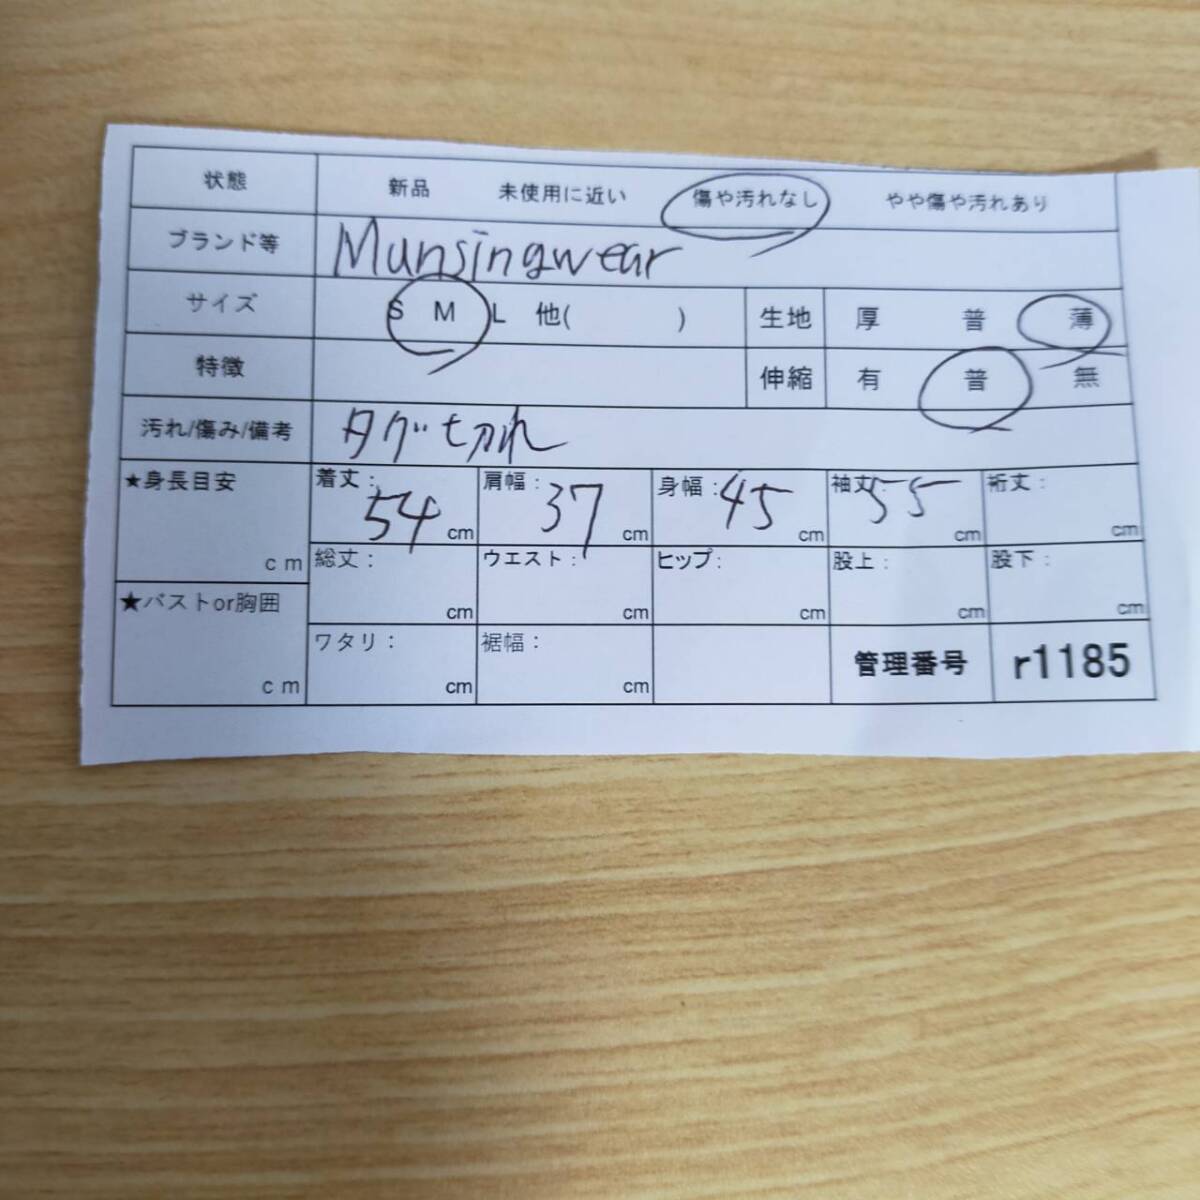 状態 新品 未使用に近い 傷や汚れなし やや傷や汚れあり
ブランド等 Munsingwear
サイズ S M L 他( ) 生地 厚 普 薄
特徴 伸縮 有 普 無
汚れ/傷み/備考 タグ切れ
★身長目安 着丈: 54 cm 肩幅: 37 cm 身幅: 45 cm 袖丈: 55 cm 裄丈: cm
cm 総丈: cm ウエスト: cm ヒップ: cm 股上: cm 股下: cm
★バストor胸囲 cm ワタリ: cm 裾幅: cm 管理番号 r1185